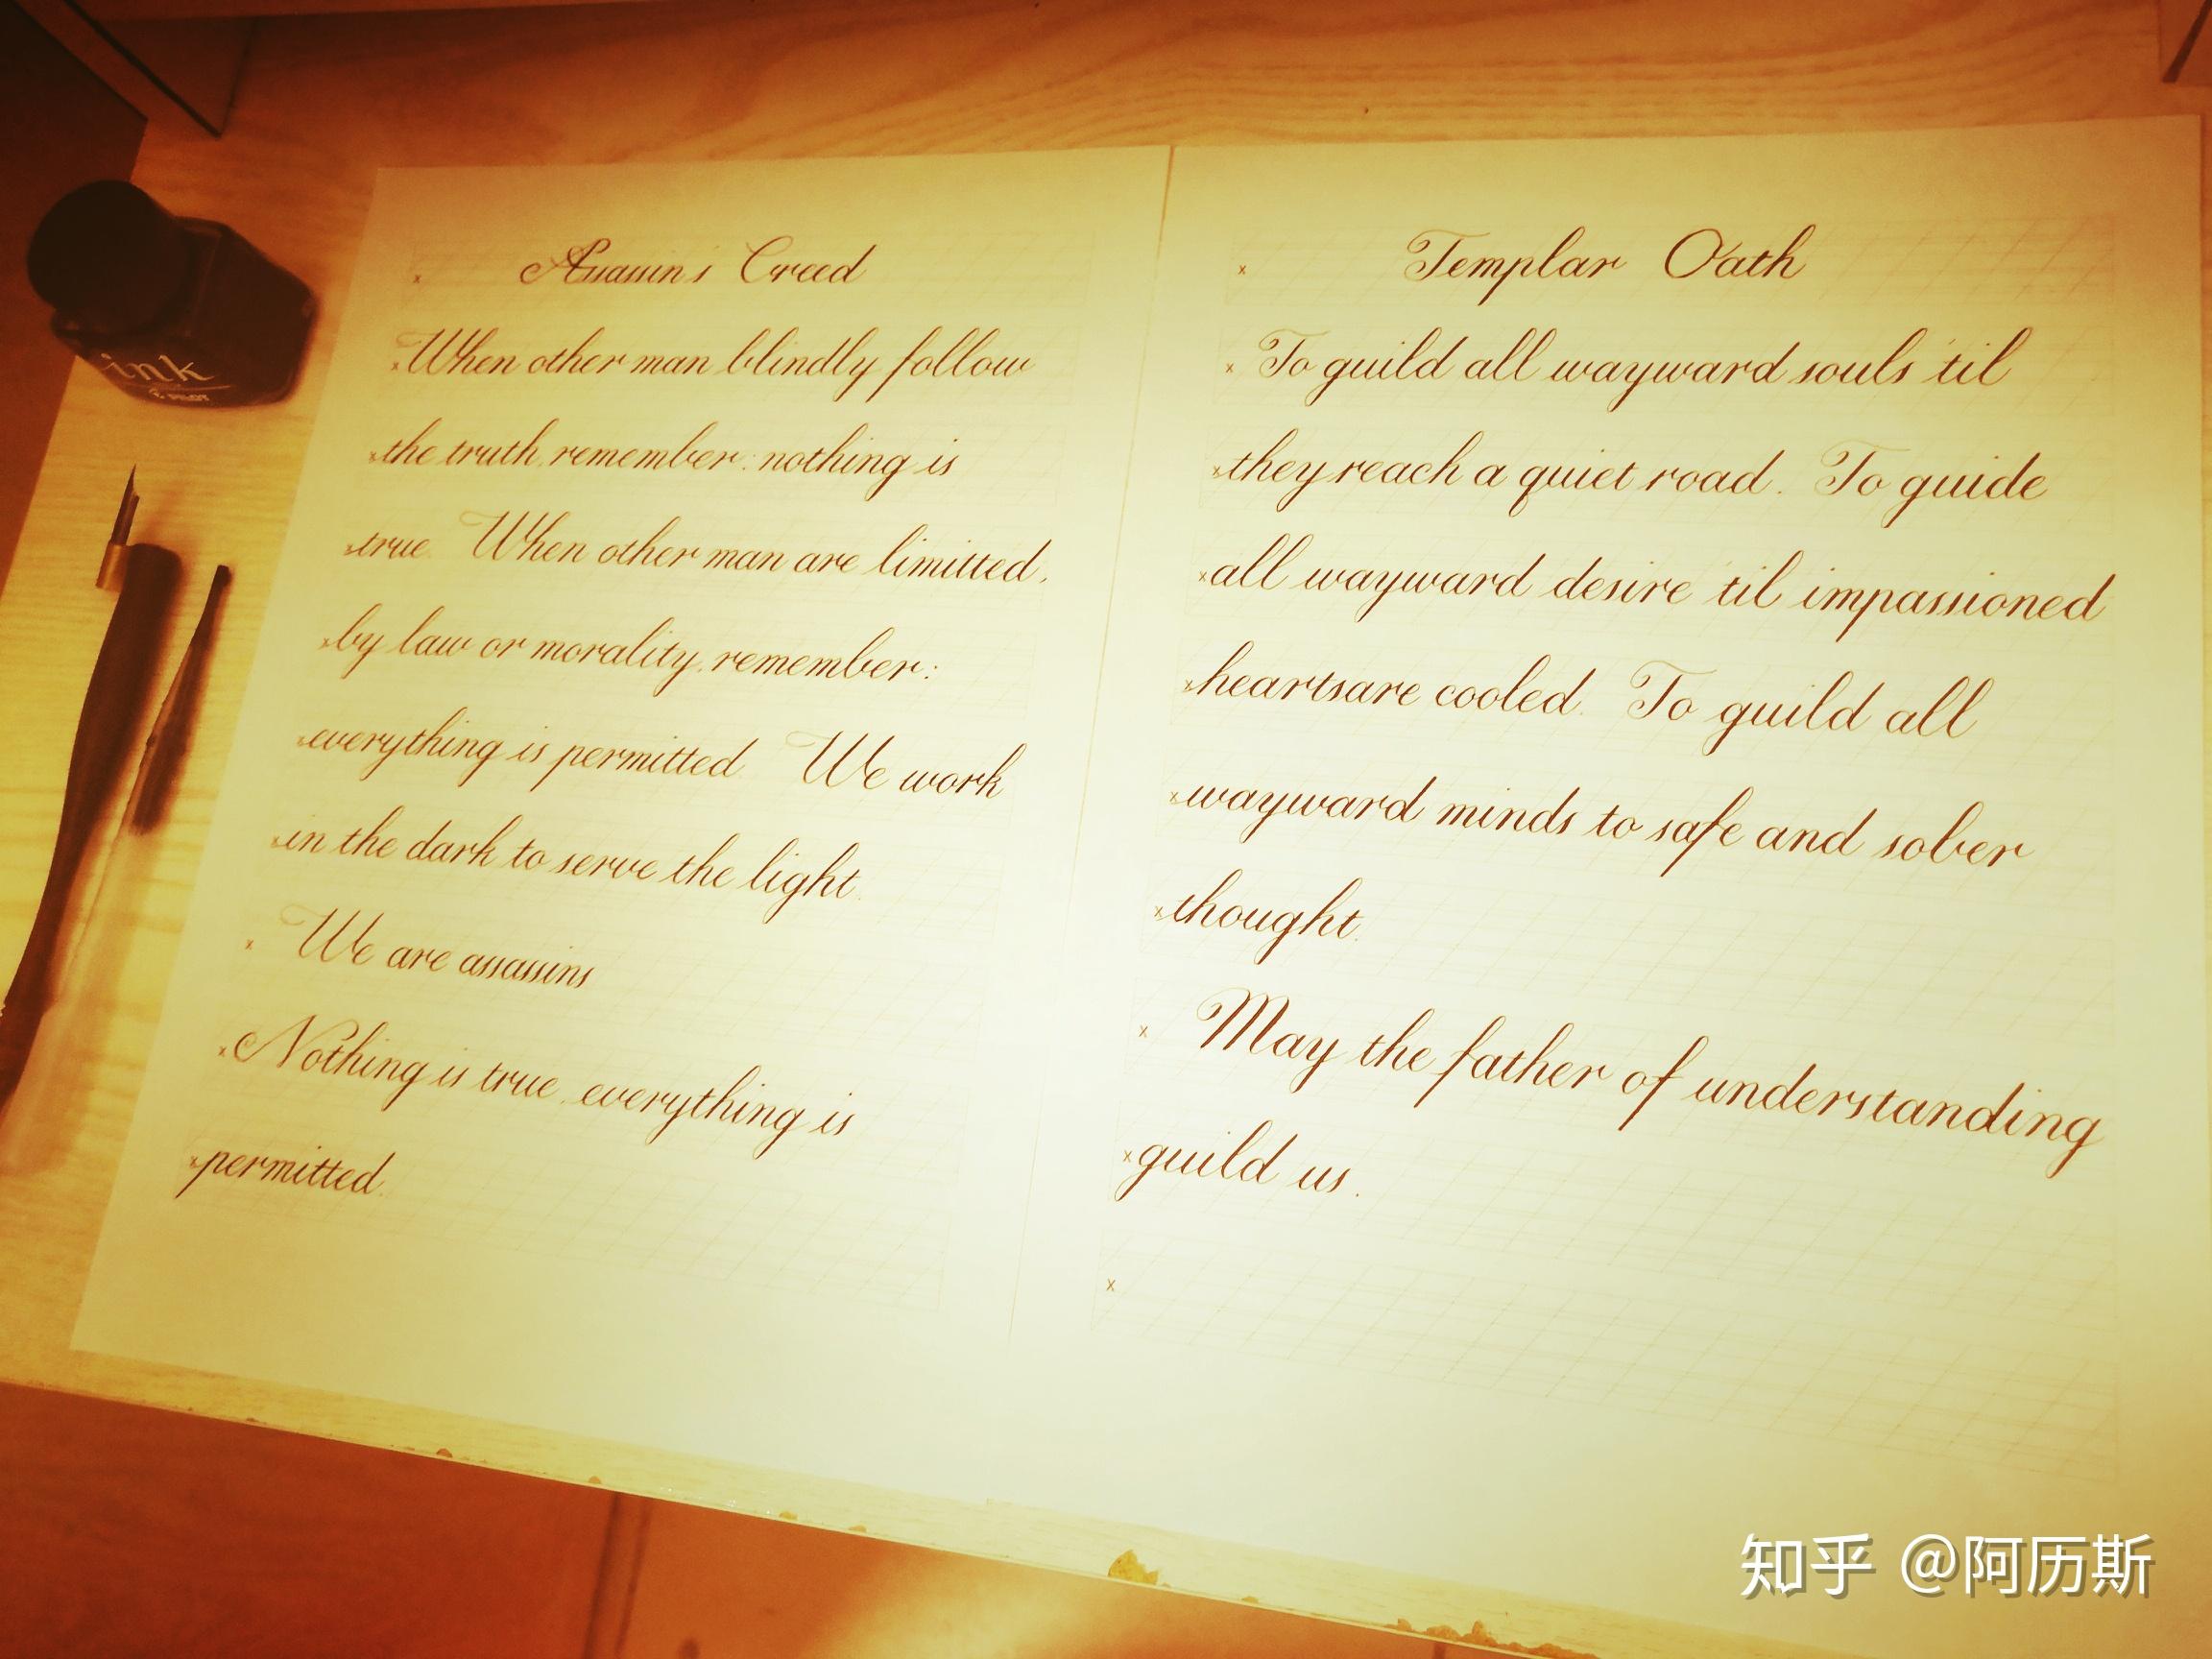 Assassin's Creed
When other man blindly follow
the truth, remember: nothing is
true. When other man are limitted,
by law or morality, remember:
everything is permitted. We work
in the dark to serve the light.
We are assassins
Nothing is true, everything is
permitted.
Templar Oath
To guild all wayward souls 'til
they reach a quiet road. To guide
all wayward desire 'til impassioned
heartsare cooled. To guild all
wayward minds to safe and sober
thought.
May the father of understanding
guild us.
ink
PILOT
知乎 @阿历斯